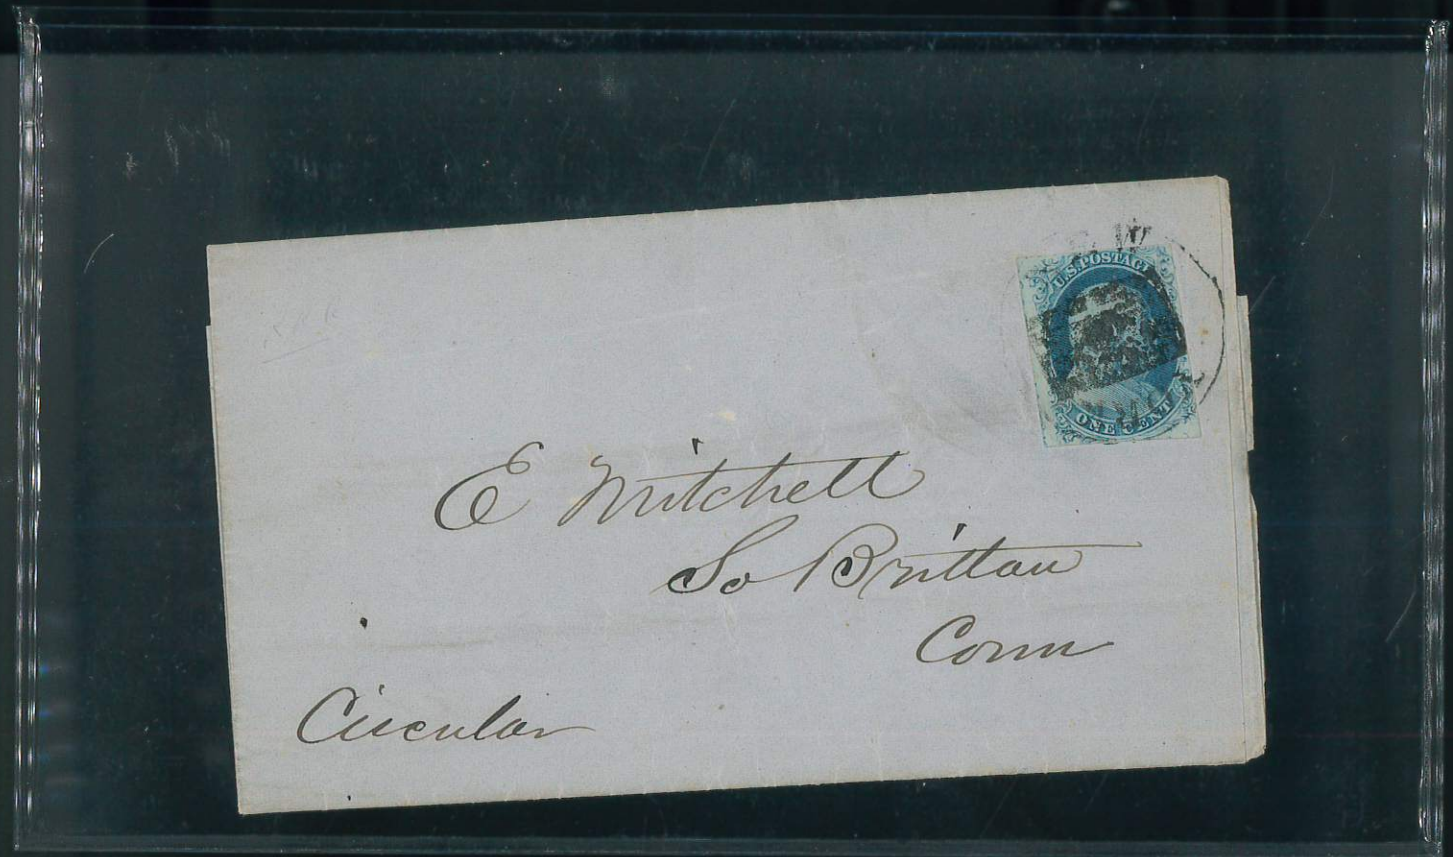 U.S. POSTAGE
ONE CENT
E Mitchell
So Brittan
Conn
Circular